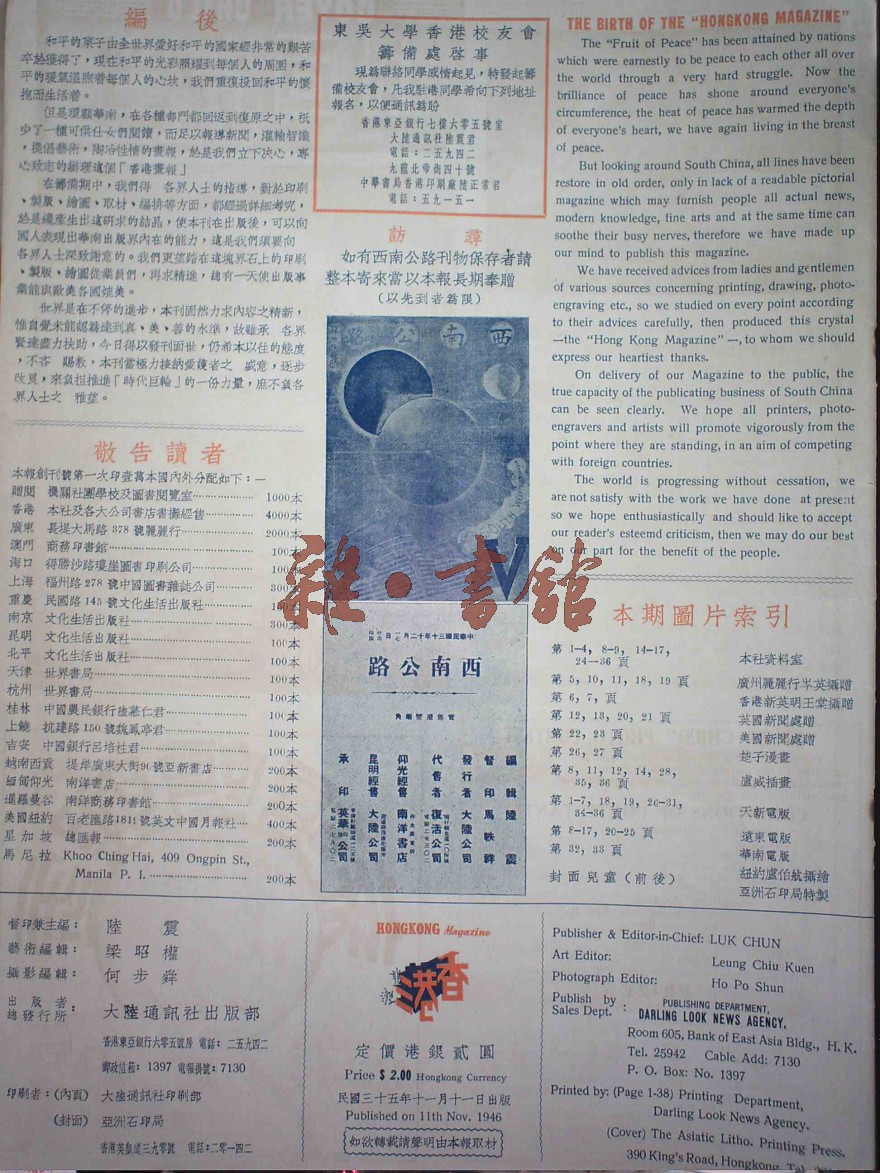 編後
和平的菓子由全世界愛好和平的國家經非常的艱苦
卒於獲得了，現在和平的光彩照耀到每個人的周圍，和
平的暖氣溫煦着每個人的心坎，我們重復投囘和平的懷
抱而生活着。
但是環顧華南，在各種部門都囘返到復原之中，祇
少了一種可供仕女們閱讀，而足以報導新聞，灌輸智識
，提倡藝術，陶冶性情的畫報，於是我們立下决心，專
心致志的辦理這個「香港畫報」
在籌備期中，我們得　各界人士的指導，對於印刷
、製版、繪圖、取材、編排等方面，都經過詳細考究，
於是纔產生出這研求的結晶，使本刊在出版後，可以向
國人表現出華南出版界內在的能力，這是我們須要向
各界人士深致謝意的。我們更望踏在這塊界石上的印刷
、製版、繪圖從業員們，再求精進，總有一天使出版事
業能與歐美各國媲美。
世界是在不停的進步，本刊固然力求內容之精新，
惟自覺未能認為達到真、美、善的水準，故雖承　各界
賢達盡力扶助，今日得以發刊面世，仍希本以往的態度
，不吝　賜教，本刊當極力接納愛護者之　盛意，逐步
改良，來負担推進「時代巨輪」的一份力量，庶不負各
界人士之　雅望。
敬告讀者
本報創刊號第一次印壹萬本國內外分配如下：—
贈閱　機關社團學校及圖書閱覽室 1000本
香港　本社及各大公司書店書攤經售 4000本
廣東　長堤大馬路378號麗麗行 2000本
澳門　商務印書館 100本
海口　得勝沙路瓊崖圖書印刷公司 100本
上海　福州路278號中國圖書雜誌公司 300本
重慶　民國路145號文化生活出版社
南京　文化生活出版社 300本
昆明　文化生活出版社 100本
北平　文化生活出版社 100本
天津　世界書局 100本
杭州　世界書局 100本
桂林　中國農民銀行君 100本
上饒　抗建路150號魏鳳亭君 100本
吉安　中國銀行呂培社君 100本
越南西貢　堤岸廣東大街90號亞新書店 200本
緬甸仰光　南洋書店 200本
暹羅曼谷　南洋商務印書館 200本
美國紐約　百老匯路號英文中國月報社 400本
星加坡　總匯報 200本
馬尼拉　Khoo Ching Hai, 409 Ongpin St.,
Manila P. I. 200本
東吳大學香港校友會
籌備處啓事
現為聯絡同學感情起見，特發起籌
備校友會，凡我駐港同學希向下列地址
報名，以便通訊為盼
香港東亞銀行七樓六零五號室
大陸通訊社陸震君
電話：二五九四二
九龍北帝街四十號
中華書局香港印刷廠陸正常君
電話：五九一五一
訪尋
如有西南公路刊物保存者請
整本寄來當以本報長期奉贈
（以先到者為限）
西南公路
V
中華民國三十年十二月一日
西南公路
編輯陸震
督印馬軼群
發行者大陸公司
代售者復活公司
仰光經售南洋書店
昆明經售大陸公司
承印英華公司
雜·書館
THE BIRTH OF THE “HONGKONG MAGAZINE”
The “Fruit of Peace” has been attained by nations
which were earnestly to be peace to each other all over
the world through a very hard struggle. Now the
brilliance of peace has shone around everyone's
circumference, the heat of peace has warmed the depth
of everyone's heart, we have again living in the breast
of peace.
But looking around South China, all lines have been
restore in old order, only in lack of a readable pictorial
magazine which may furnish people all actual news,
modern knowledge, fine arts and at the same time can
soothe their busy nerves, therefore we have made up
our mind to publish this magazine.
We have received advices from ladies and gentlemen
of various sources concerning printing, drawing, photo-
engraving etc., so we studied on every point according
to their advices carefully, then produced this crystal
—the “Hong Kong Magazine” —, to whom we should
express our heartiest thanks.
On delivery of our Magazine to the public, the
true capacity of the publicating business of South China
can be seen clearly. We hope all printers, photo-
engravers and artists will promote vigorously from the
point where they are standing, in an aim of competing
with foreign countries.
The world is progressing without cessation, we
are not satisfy with the work we have done at present
so we hope enthusiastically and should like to accept
our reader's esteemd criticism, then we may do our best
on our part for the benefit of the people.
本期圖片索引
第 1-4, 8-9, 14-17,
24—36 頁 本社資料室
第 5, 10, 11, 18, 19 頁 廣州麗麗行岑英攝贈
第 6, 7, 頁 香港新英明王棠攝贈
第 12, 13, 20, 21 頁 英國新聞處贈
第 22, 23 頁 美國新聞處贈
第 26, 27 頁 楚子漫畫
第 8, 11, 12, 14, 28,
35, 36 頁 盧威插畫
第 1-7, 18, 19, 26-31,
34-36 頁 天新電版
第 8-17, 20-25 頁 遠東電版
第 32, 33 頁 華南電版
封面兒童（前後） 紐約盧伯航攝繪
亞洲石印局特製
督印兼主編：陸震
藝術編輯：梁昭權
攝影編輯：何步舜
出版者：
總發行所：
大陸通訊社出版部
香港東亞銀行六零五號房　電話：二五九四二
郵政信箱：1397 電報掛號：7130
印刷者：（內頁）大陸通訊社印刷部
（封面）亞洲石印局
香港英皇道三九零號　電話：二零一四二
HONGKONG Magazine
香港畫報
定價港銀貳圓
Price $ 2.00 Hongkong Currency
民國三十五年十一月十一日出版
Published on 11th Nov. 1946
如欲轉載請聲明由本報取材
Publisher & Editor-in-Chief: LUK CHUN
Art Editor: Leung Chiu Kuen
Photograph Editor: Ho Po Shun
Publish by
Sales Dept. :
PUBLISHING DEPARTMENT,
DARLING LOOK NEWS AGENCY,
Room 605, Bank of East Asia Bldg., H. K.
Tel. 25942 Cable Add: 7130
P. O. Box: No. 1397
Printed by: (Page 1-38) Printing Department,
Darling Look News Agency.
(Cover) The Asiatic Litho. Printing Press.
390 King's Road, Hongkong.